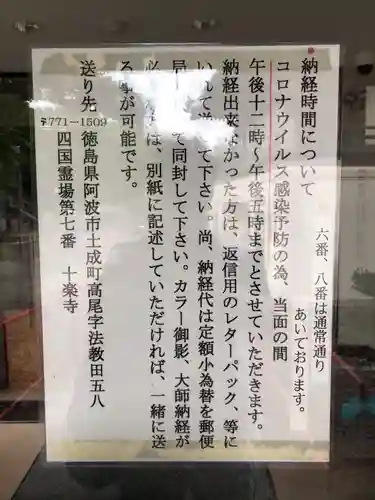 納経時間について
六番、八番は通常通り
あいております。
コロナウイルス感染予防の為、当面の間
午後十二時～午後五時までとさせていただきます。
納経出来なかった方は、返信用のレターパック、等に
いれて送って下さい。尚、納経代は定額小為替を郵便
局 て同封して下さい。カラー御影、大師納経が
必 は、別紙に記述していただければ、一緒に送
る事が可能です。
送り先 〒771-1509 徳島県阿波市土成町高尾字法教田五八
四国霊場第七番 十楽寺